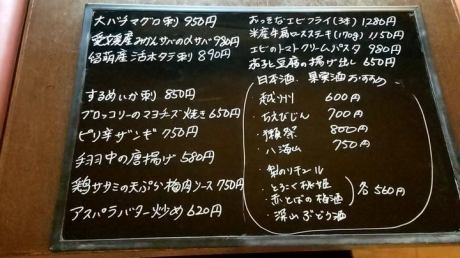 大バチマグロ刺 950円
愛媛産みかんサバのαサバ 980円
留萌産活ホタテ刺 890円
するめいか刺 850円
ブロッコリーのマヨチーズ焼き 650円
ピリ辛ザンギ 750円
手羽中の唐揚げ 580円
鶏ササミの天ぷら梅肉ソース 750円
アスパラバター炒め 620円
おっきなエビフライ(3本) 1280円
米産牛肩ロースステーキ(170g) 1150円
エビのトマトクリームパスタ 980円
茄子と豆腐の揚げ出し 650円
日本酒、果実酒おすすめ
・越州 600円
・ちえびじん 700円
・獺祭 800円
・八海山 750円
・梨のリキュール
・とろこく桃姫
・赤とばの梅酒
・深山ぶどう酒
各560円